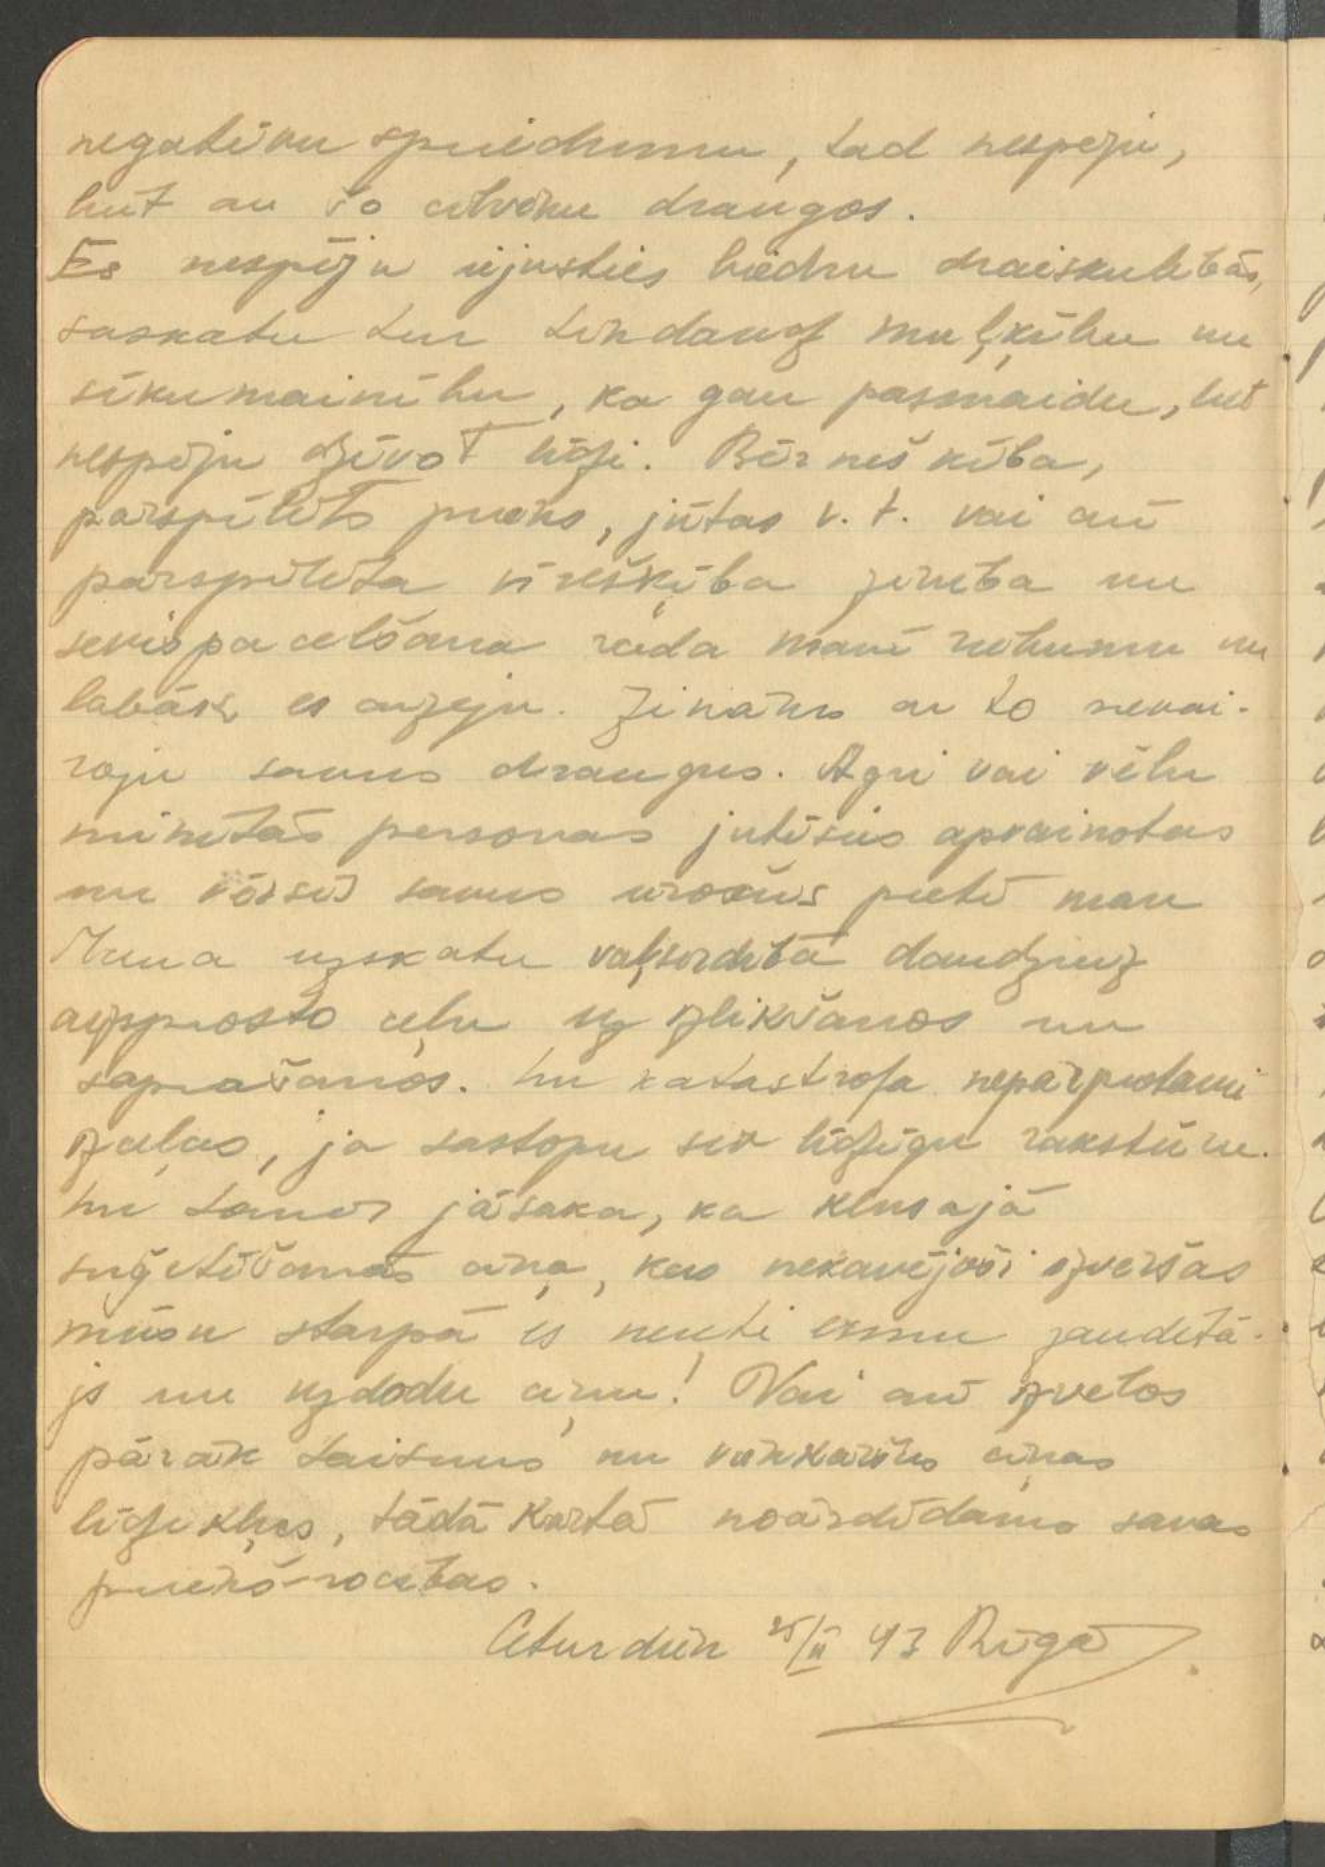 negatīvu spriedumu, tad nespēju,
būt ar šo cilvēku draugos.
Es nespēju iejusties biedru draiskulībās,
saskatu tur tik daudz muļķību un
sīkumainību, ka gan pasmaidu, bet
nespēju dzīvot līdzi. Bērnišķība,
pārspīlēts prieks, jūtas u. t. vai arī
pārspīlēta vīrišķība
sevis pacelšana rada manī riebumu un
labāk es aizeju. Zināms ar to nevai-
roju savus draugus. Agri vai vēlu
minētās personas jutīsies apvainotas
un vērsīs savus ieročus pret mani
Mana uzskatu vaļsirdība daudzreiz
aizsprosto ceļu uz izlīkšanos un
saprašanos. Un katastrofa nepārprotami
izceļas, ja sastopu sev līdzīgu raksturu.
Un tomēr jāsaka, ka klusajā
cīņa, kas nekavējoši izvēršas
mūsu starpā es neesmu zaudētā-
js un uzdodu cīņu! Vai arī izvēlos
pārāk taisnus un vienkāršus cīņas
līdzekļus, tādā kārtā noārdīdams savas
priekš-rocības.
Ceturdien 25/II 43 Rīgā